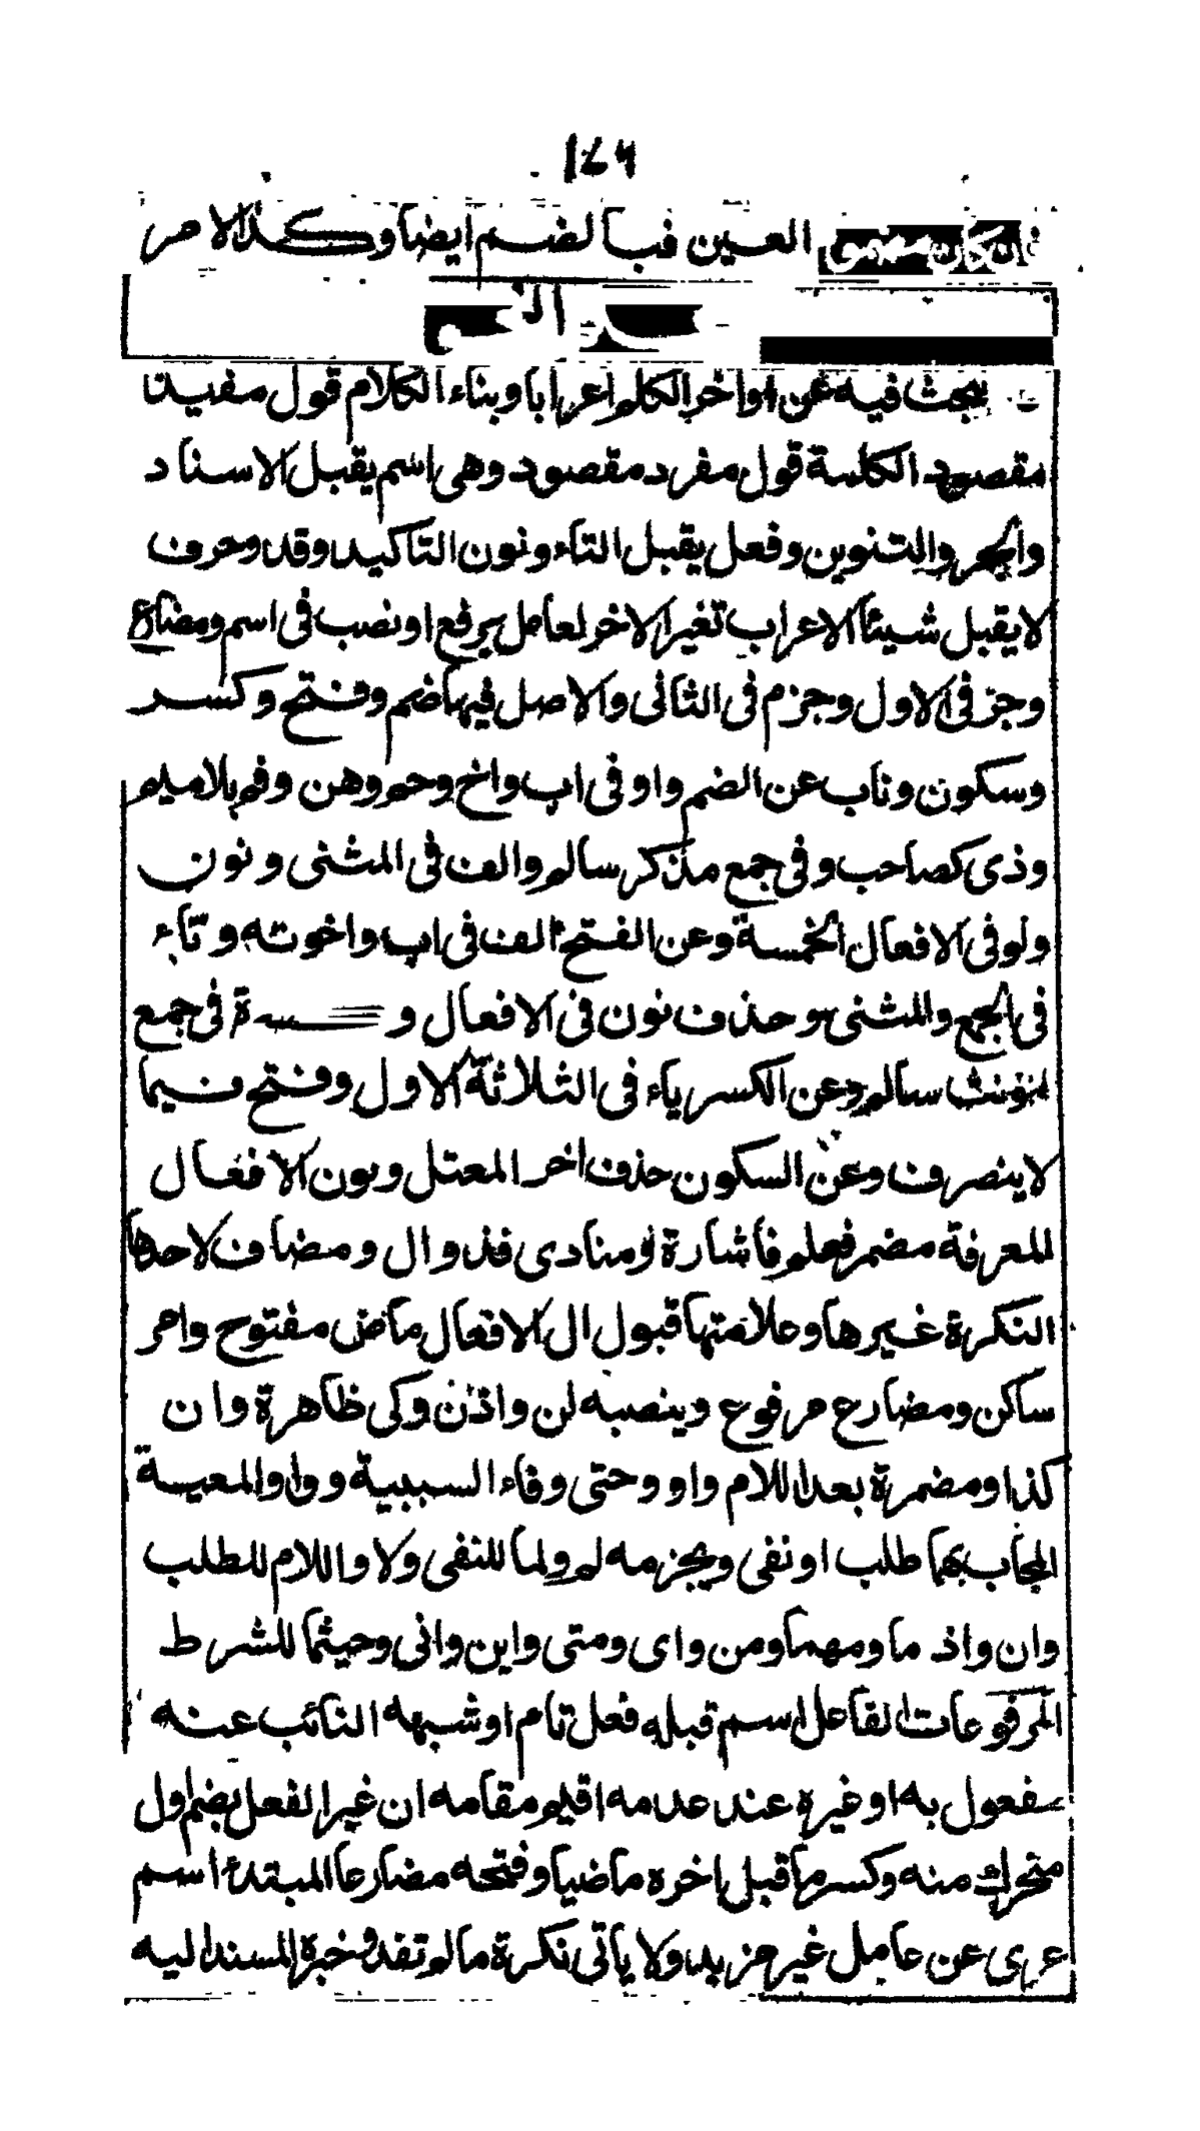 ١٤٦
فان كان مضموم العين فبالضم ايضا وكذا الامر
علم النحو
يبحث فيه عن اواخر الكلم اعرابا وبناء الكلام قول مفيد
مقصود الكلمة قول مفرد مقصود وهى اسم يقبل الاسناد
والجر والتنوين وفعل يقبل التاء ونون التاكيد وقد وحرف
لا يقبل شيئا الاعراب تغير الاخر لعامل برفع او نصب فى اسم ومضارع
وجر فى الاول وجزم فى الثانى والاصل فيها ضم وفتح وكسر
وسكون وناب عن الضم واو فى اب واخ وحم وهن وفم بلا ميم
وذى كصاحب وفى جمع مذكر سالم والف فى المثنى ونون
ولو فى الافعال الخمسة وعن الفتح الف فى اب واخوته وتاء
فى الجمع والمثنى وحذف نون فى الافعال وكسرة فى جمع
مؤنث سالم وعن الكسر ياء فى الثلاثة الاول وفتح فيما
لا ينصرف وعن السكون حذف اخر المعتل ونون الافعال
المعرفة مضمر فعلم فاشارة ومنادى فذو ال ومضاف لاحدها
النكرة غيرها وعلامتها قبول ال الافعال ماض مفتوح وامر
ساكن ومضارع مرفوع وينصبه لن واذن وكى ظاهرة وان
كذا ومضمرة بعد اللام واو وحتى وفاء السببية وواو المعية
المجاب بهما طلب او نفى ويجزمه لم ولما للنفى ولا واللام للطلب
وان واذ ما ومهما ومن واى ومتى واين وانى وحيثما للشرط
المرفوعات الفاعل اسم قبله فعل تام او شبهه النائب عنه
مفعول به او غيره عند عدمه اقيم مقامه ان غير الفعل بضم اول
متحرك منه وكسر ما قبل اخره ماضيا وفتحه مضارعا المبتدء اسم
عرى عن عامل غير مزيد ولا ياتى نكرة ما لم تفد وخبره المسند اليه